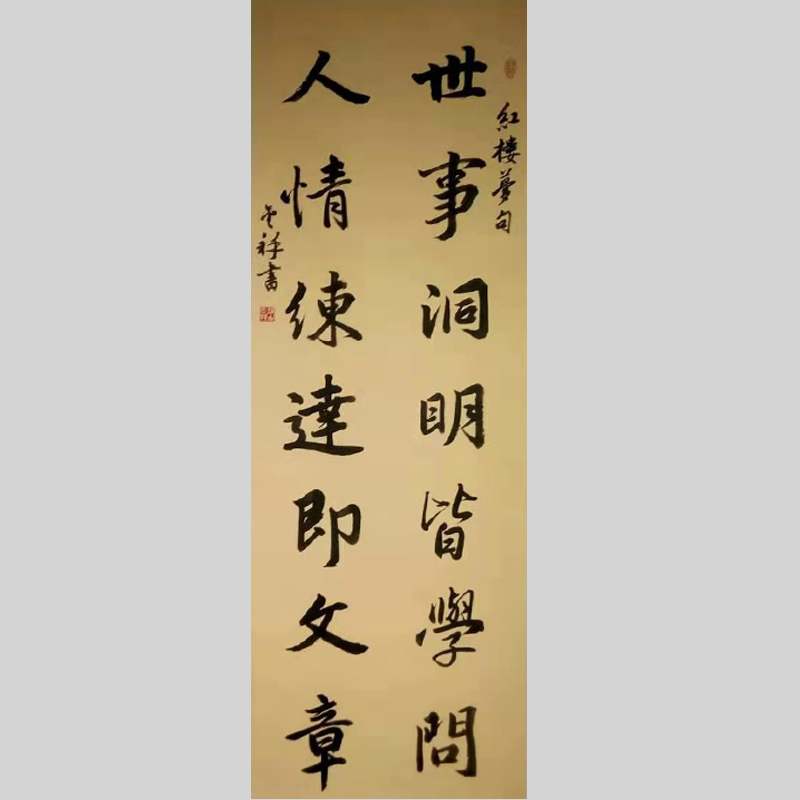 紅樓夢句
世事洞明皆學問
人情練達即文章
祥書